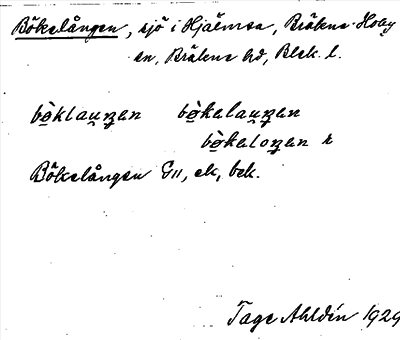 Bökelången, sjö i Hjälmsa, Bräkne-Hoby
sn, Bräkne hd, Blek. l.
bø̀klauŋen bø̀kelauŋen
bø̀keloŋen r
Bökelången G11, ek, bek.
Tage Ahldén 1929